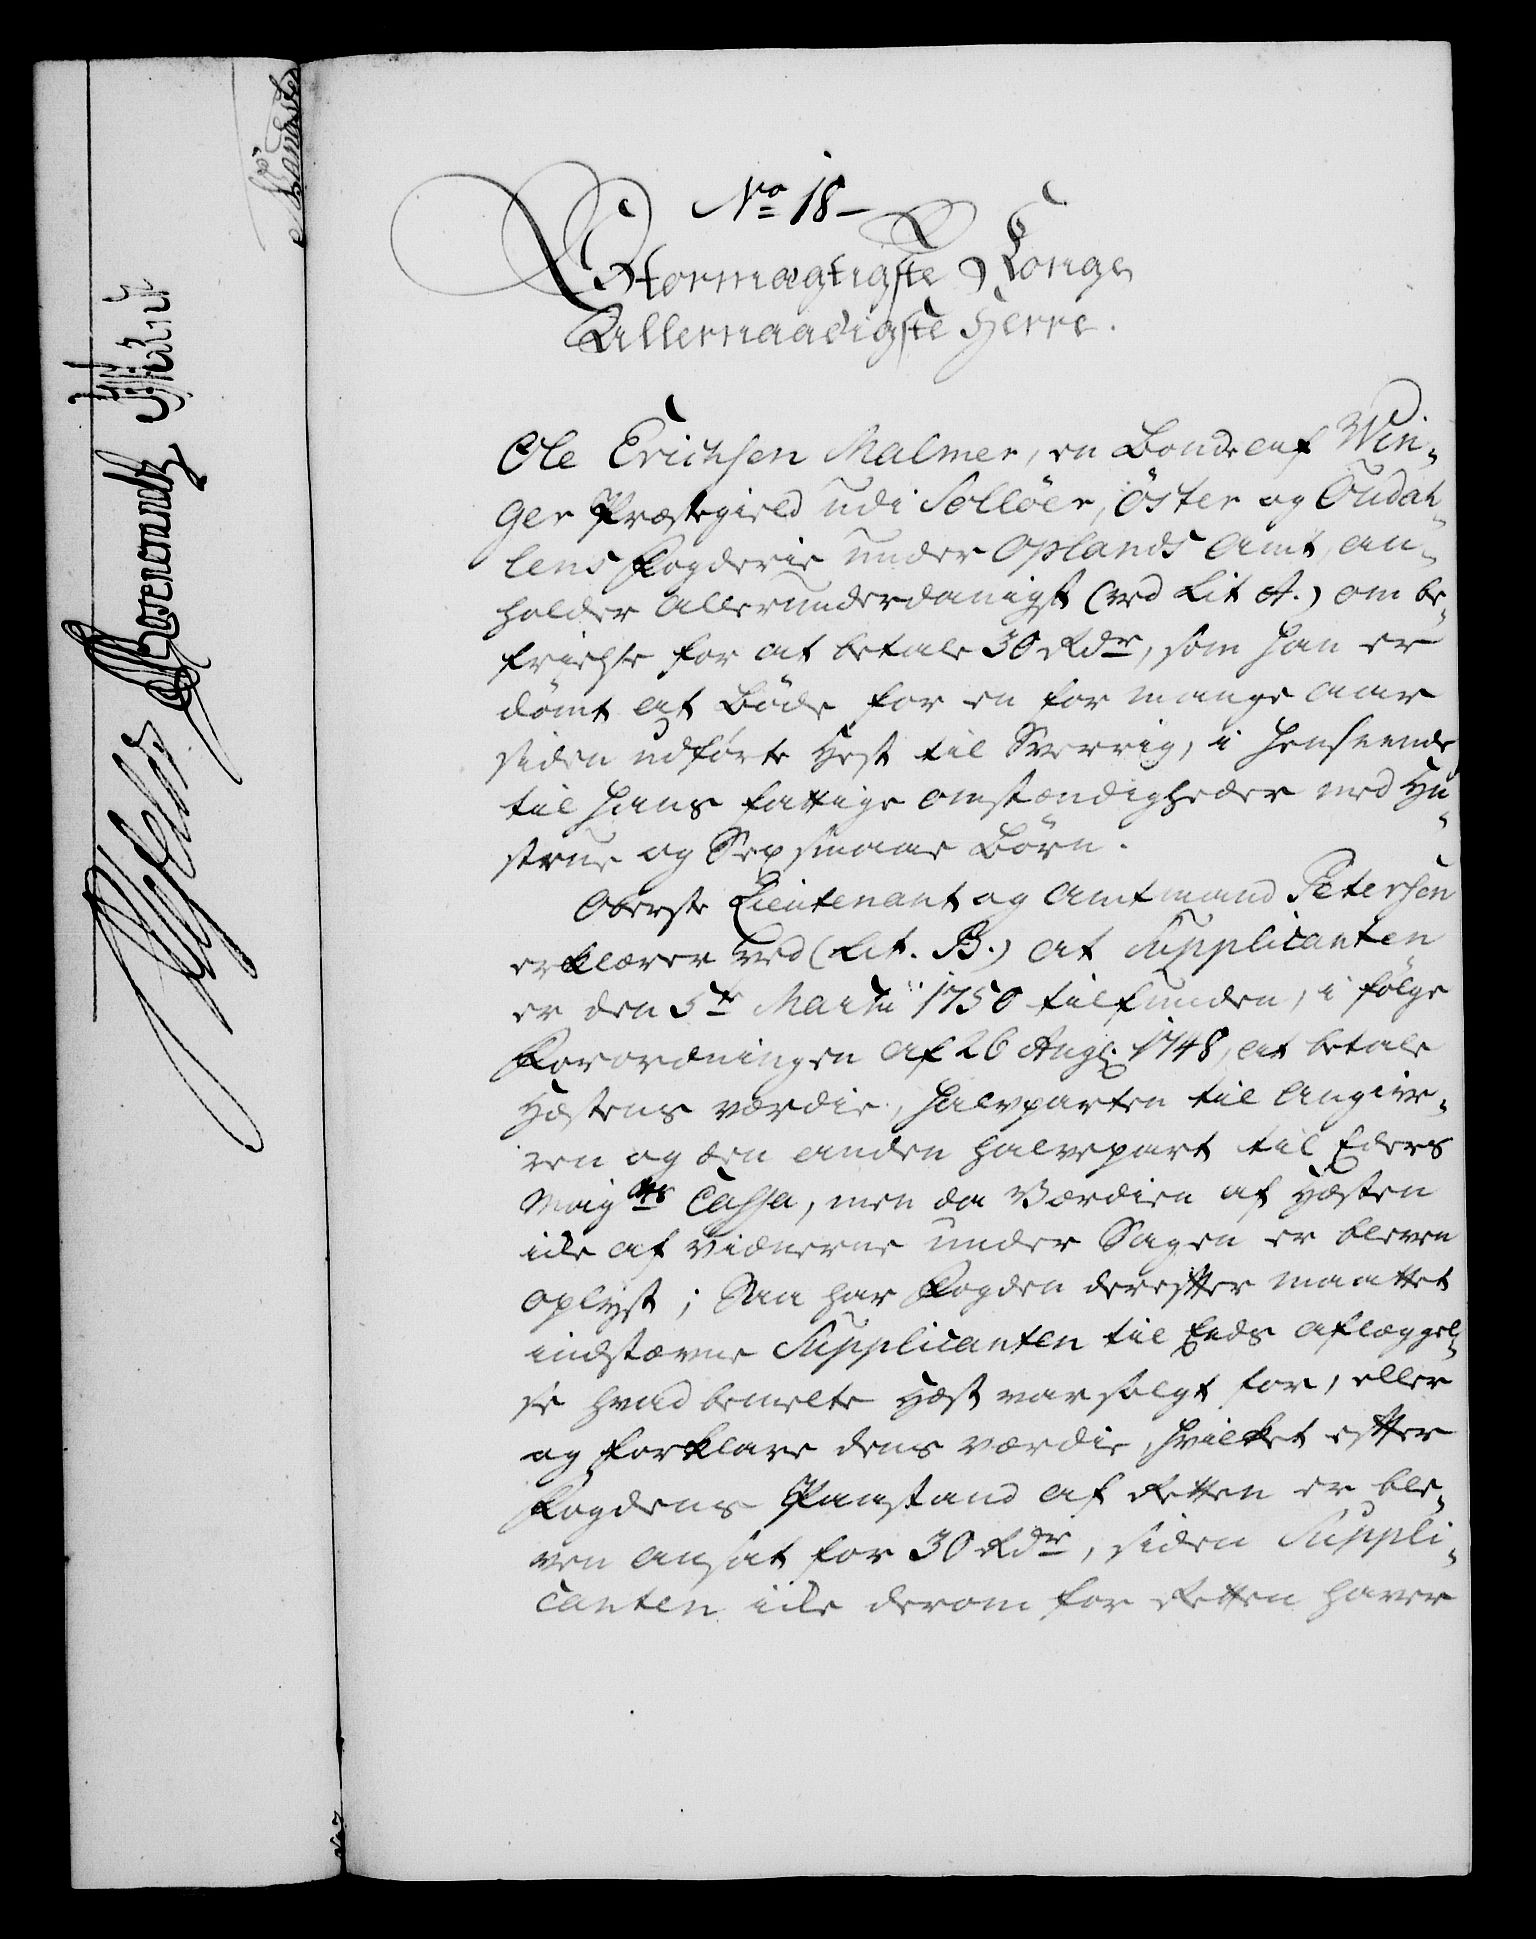 No 18
Stormægtigste Konge
Allernaadigste Herre.
Ole Erichsen Malmer, en Bonde af Win-
ger Præstegield udi Solløer, Öster og Oudah-
lens Fogderie under Oplands Amt, an-
holder allerunderdanigst (ved Lit A.) om be-
frielse for at betale 30 Rdr, som han er
dömt at Böde for en for mange aar
siden udførte Hest til Sverrig, i henseende
til hans fattige omstændigheder med Hu-
strue og Sex smaae Börn.
Oberste Lieutenant og Amtmand Petersen
erklærer ved (Lit. B.) at Supplicanten
er den 5te Martii 1750 tilfunden, i følge
Forordningen af 26 Aug. 1748, at betale
Hæstens værdie, halvparten til Angive-
ren og den anden halvepart til Eders
Mayts Cassa, men da Værdien af Hæsten
icke af Vidnerne under Sagen er bleven
oplyst; Saa har Fogden derefter maattet
indstævne Supplicanten til Eeds aflæggel-
se hvad bemelte Hæst var solgt for, eller
og forklare dens værdie, hvilket efter
Fogdens Paastand af Retten er ble-
ven ansat for 30 Rdr, siden Suppli-
canten icke derom for Retten haver